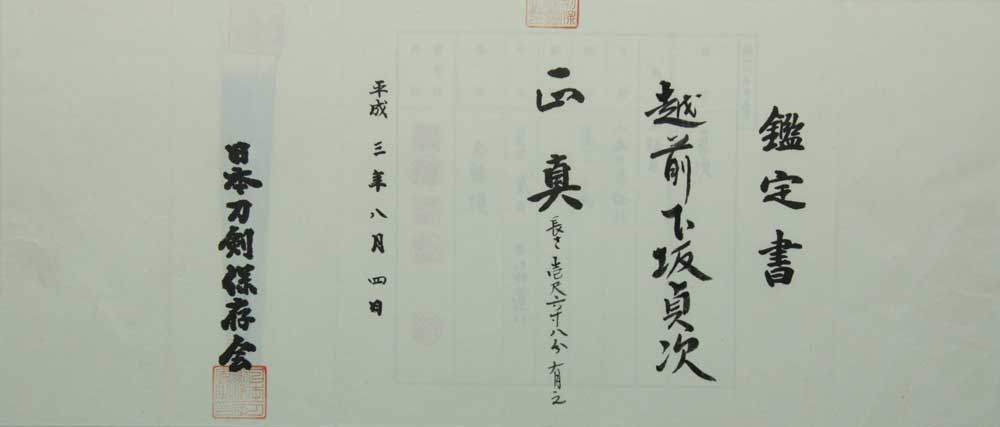 鑑定書
越前下坂貞次
正真
長さ壱尺六寸八分有之
平成三年八月四日
日本刀剣保存会